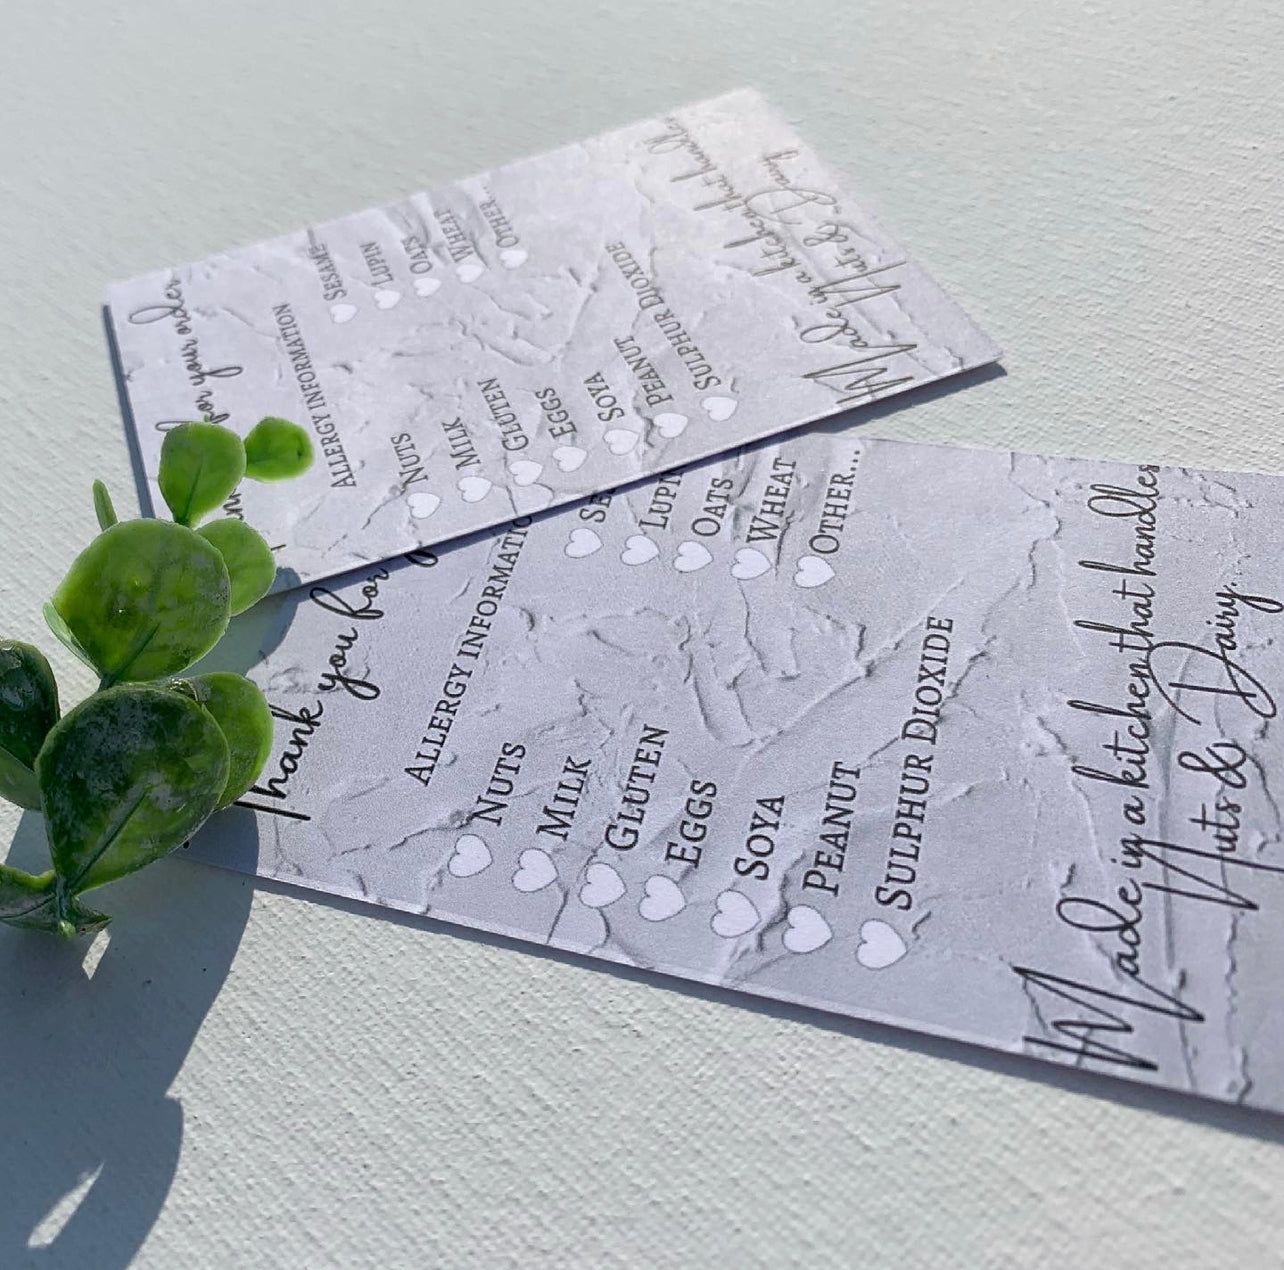 for your order
ALLERGY INFORMATION
NUTS
MILK
GLUTEN
EGGS
SOYA
PEANUT
SULPHUR DIOXIDE
SESAME
LUPIN
OATS
WHEAT
OTHER...
Made in a kitchen that handles
Nuts & Dairy
Thank you for y
ALLERGY INFORMATIO
NUTS
MILK
GLUTEN
EGGS
SOYA
PEANUT
SULPHUR DIOXIDE
SE
LUPI
OATS
WHEAT
OTHER...
Made in a kitchen that handles
Nuts & Dairy.